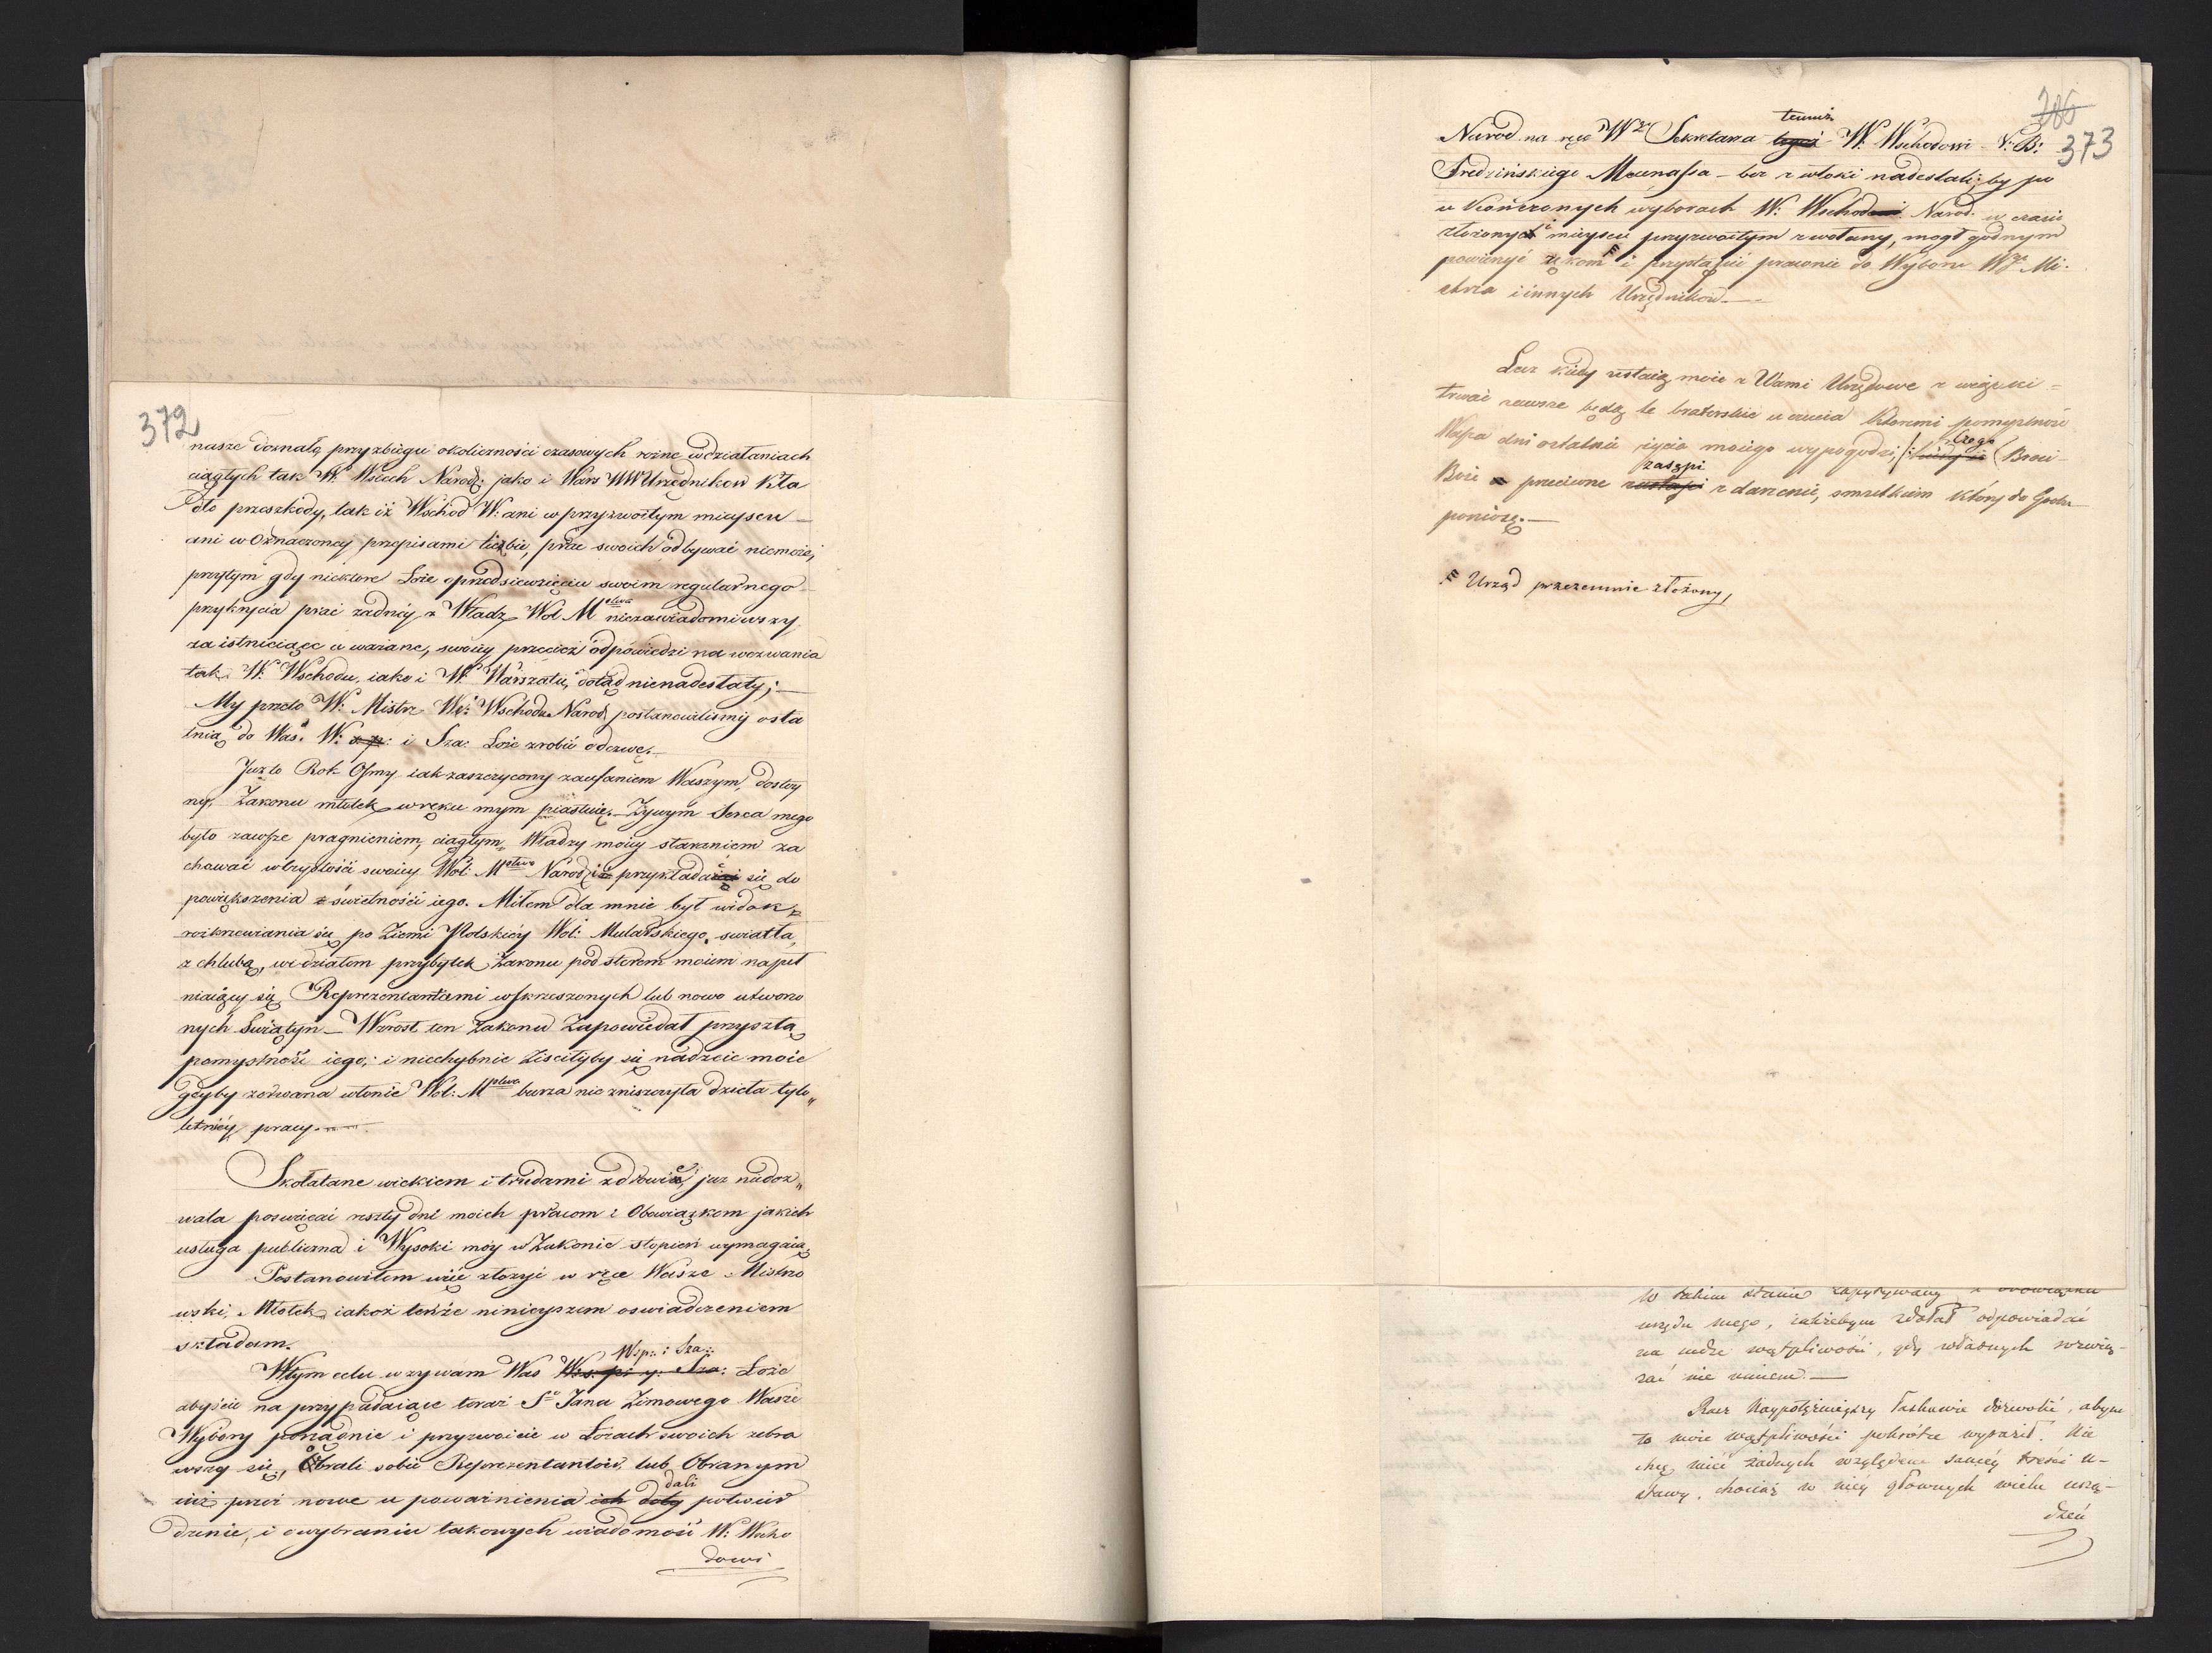 372
nasze doznałą przyzbiegu okoliczności czasowych rożne wdziałaniach
ciągłych tak W. Wsch Narod: jako i Wars WW Urzędnikow Kła
dło przeszkody, tak iż Wschod W: ani w przyzwoitym mieyscu —
ani w Oznaczoney przepisami liczbie, prac swoich odbywać niemoże,
przytym gdy niektore Loże oprzedsiewzięciu swoim regularnego
przykrycia prac żadney z Władz Wol M niezawiadomiwszy
za istnieiące uważane, swoiey przecież odpowiedzi na wezwania
tak W: Wschodu, iako i W. Warsztatu, dotąd nienadesłały; —
My przeto W: Mistrz We: Wschodu Narod postanowiliśmy osta
tnią do Was. W: s. p: i Sza: Loże zrobić odezwę. —
Już to Rok Osmy iak zaszczycony zaufaniem Waszym, dostoy
ny, Zakonu młotek w ręku mym piastuię. Żywym Serca mego
było zawsze pragnieniem, ciągłym, Władzy moiey staraniem za
chować wbrystości swoiey Wol: M Narod: przykładać się do
powiększenia świetności iego. Miłem dla mnie był widok
rozkrzewiania się po Ziemi Polskiey Wol: Mularskiego swiatła,
z chlubą, widziałem przybytek Zakonu pod sterem moiem napeł
niaiący się Reprezentantami wskrzeszonych lub nowo utworzo
nych Swiątyń — Wzrost ten Zakonu Zapowiedał przyszłą
pomyslność iego; i niechybnie Zisciłyby się nadzeie moie
gdyby zerwana włonie Wol: M burza nie zniszczyła dzieła tylo„
letniey pracy. —
Skołatane wiekiem i trudami zdrowie, juz niedoz„
wala poswięcać reszty dni moich pracom i Obowiązkom jakich
usługa publiczna i Wysoki moy w Zakonie stopień wymagaią
Postanowiłem więc złożyć w ręce Wasze Mistrzo
wski Młotek, iakoż tenże ninieyszem oswiadczeniem
składam.
Wsp: i Sza:
Wtym celu wzywam Was W: s. p: y: Sza: Loże
abyście na przypadaiące teraz S Jana Zimowego Wasze
Wybory porządnie i przyzwoicie w Lożach swoich zebra
wszy się, Obrali sobie Reprezentantów, lub Obranym
dali
iuż przez nowe upoważnienia ich dały potwier
dzenie, i owybraniu takowych wiadomość W: Wscho
dowi
386
373
temuż
Narod na ręce W Sekretarza tegoż W. Wschodowi N: B:
Fredzińskiego Maunassa — bez zwłoki nadesłali; by po
ukończonych wyborach W: Wschod Narod. w czasie
złożonych i mieyscu przyzwoitym zwołany, mogł godnym
powierzyć rękom i przystąpić prawnie do Wyboru W Mi-
strza i innych Urzędników. —
Lecz kiedy ustaią moie z Wami Urzędowe związki —
trwać zawsze będą te braterskie uczucia ktoremi pomyslność
Wasza dni ostatnie życia moiego wypogodzi, (Czego Broń
zasępi
Boże przeciwne zdarzenie, smutkiem który do Grobu
poniosę. —
Urząd przezemnie złożony,
W takim stanie zapytywany z obowiązku
urzędu mego, jakżebym zdołał odpowiadać
na cudze wątpliwości, gdy własnych rozwią-
zać nie umiem. —
Racz Naypotężnieyszy łaskawie dozwolić, abym
te moie wątpliwości pokrótce wyraził. Nie
chcę mieć żadnych względem samey treści u-
stawy, chociaż w niey głównych wielu urzą-
dzeń